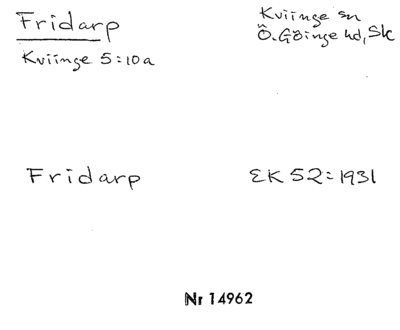 Fridarp
Kviinge sn
Ö. Göinge hd, Sk
Kviinge 5:10a
Fridarp
EK 52:1931
Nr 14962